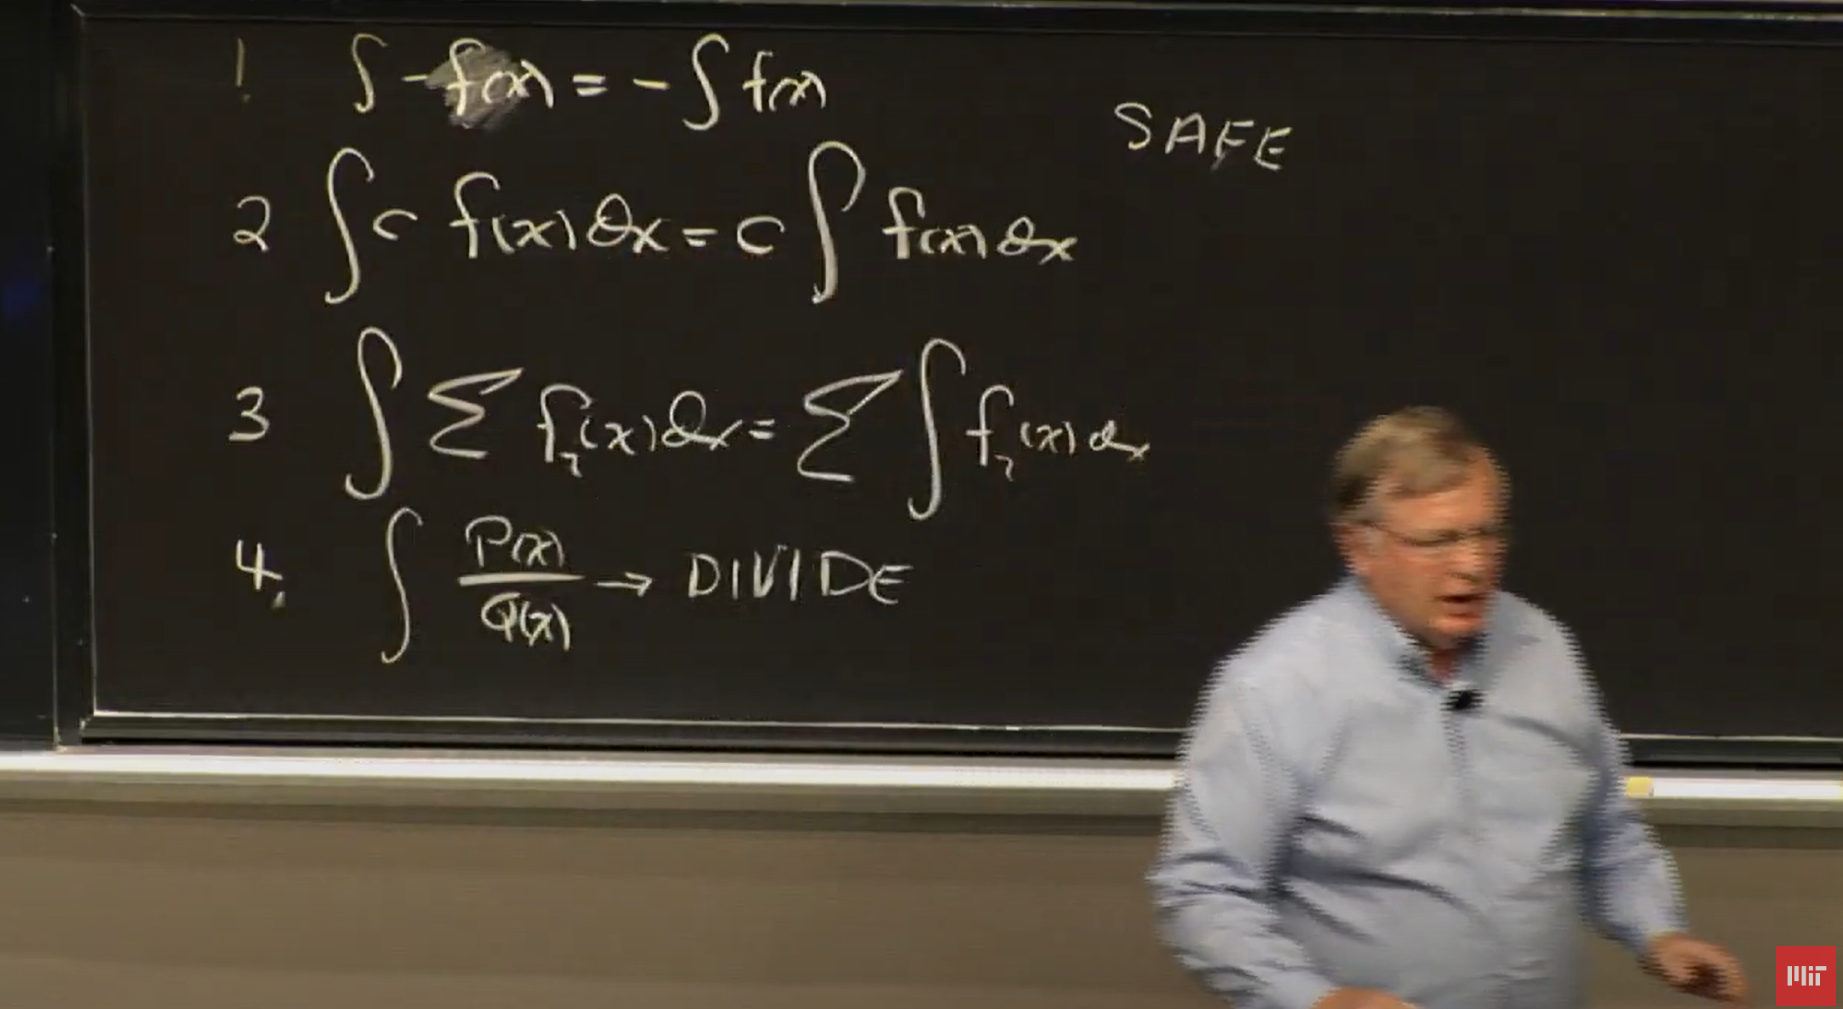 1. ∫ -f(x) = - ∫ f(x)
SAFE
2 ∫ c f(x) dx = c ∫ f(x) dx
3 ∫ Σ fᵢ(x) dx = Σ ∫ fᵢ(x) dx
4. ∫ P(x)/Q(x) → DIVIDE
MIT